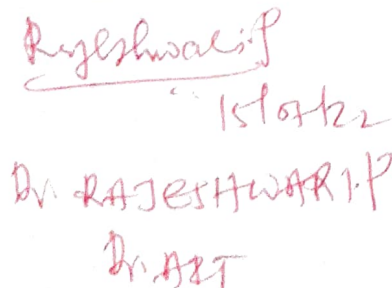 Rajeshwari.P
15/07/22
Dr. RAJESHWARI.P
Dr. ART